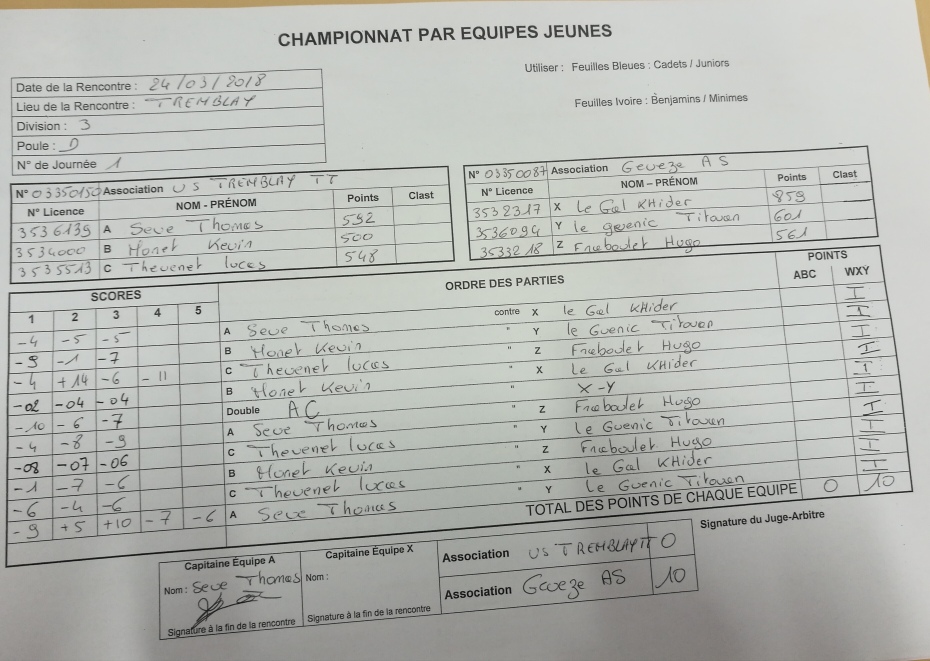 CHAMPIONNAT PAR EQUIPES JEUNES
Utiliser : Feuilles Bleues : Cadets / Juniors
Feuilles Ivoire : Benjamins / Minimes
Date de la Rencontre : 24/03/2018
Lieu de la Rencontre : TREMBLAY
Division : 3
Poule : D
N° de Journée 1
N° 03350150 Association US TREMBLAY TT
N° Licence NOM - PRÉNOM Points Clast
3536139 A Seve Thomas 592
3534000 B Monet Kevin 500
3535513 C Thevenet lucas 548
N° 03350087 Association Geveze AS
N° Licence NOM – PRÉNOM Points Clast
3532317 X le Gal KHider 859
3536094 Y le guenic Titouan 601
3533218 Z Fraboulet Hugo 561
SCORES ORDRE DES PARTIES POINTS
1 2 3 4 5 ABC WXY
-4 -5 -5 A Seve Thomas contre X le Gal KHider I
-9 -1 -7 B Monet Kevin " Y le Guenic Titouan 1
-4 +14 -6 -11 C Thevenet lucas " Z Fraboulet Hugo I
-02 -04 -04 B Monet Kevin " X le Gal KHider I
-10 -6 -7 Double AC " X-Y 1
-4 -8 -9 A Seve Thomas " Z Fraboulet Hugo I
-08 -07 -06 C Thevenet lucas " Y le Guenic Titouan I
-1 -7 -6 B Monet Kevin " Z Fraboulet Hugo I
-6 -4 -6 C Thevenet lucas " X le Gal KHider I
-9 +5 +10 -7 -6 A Seve Thomas " Y le Guenic Titouan I
TOTAL DES POINTS DE CHAQUE EQUIPE 0 10
Capitaine Équipe A Capitaine Équipe X
Nom : Seve Thomas Nom :
Signature à la fin de la rencontre Signature à la fin de la rencontre
Association US TREMBLAY TT 0
Association Geveze AS 10
Signature du Juge-Arbitre